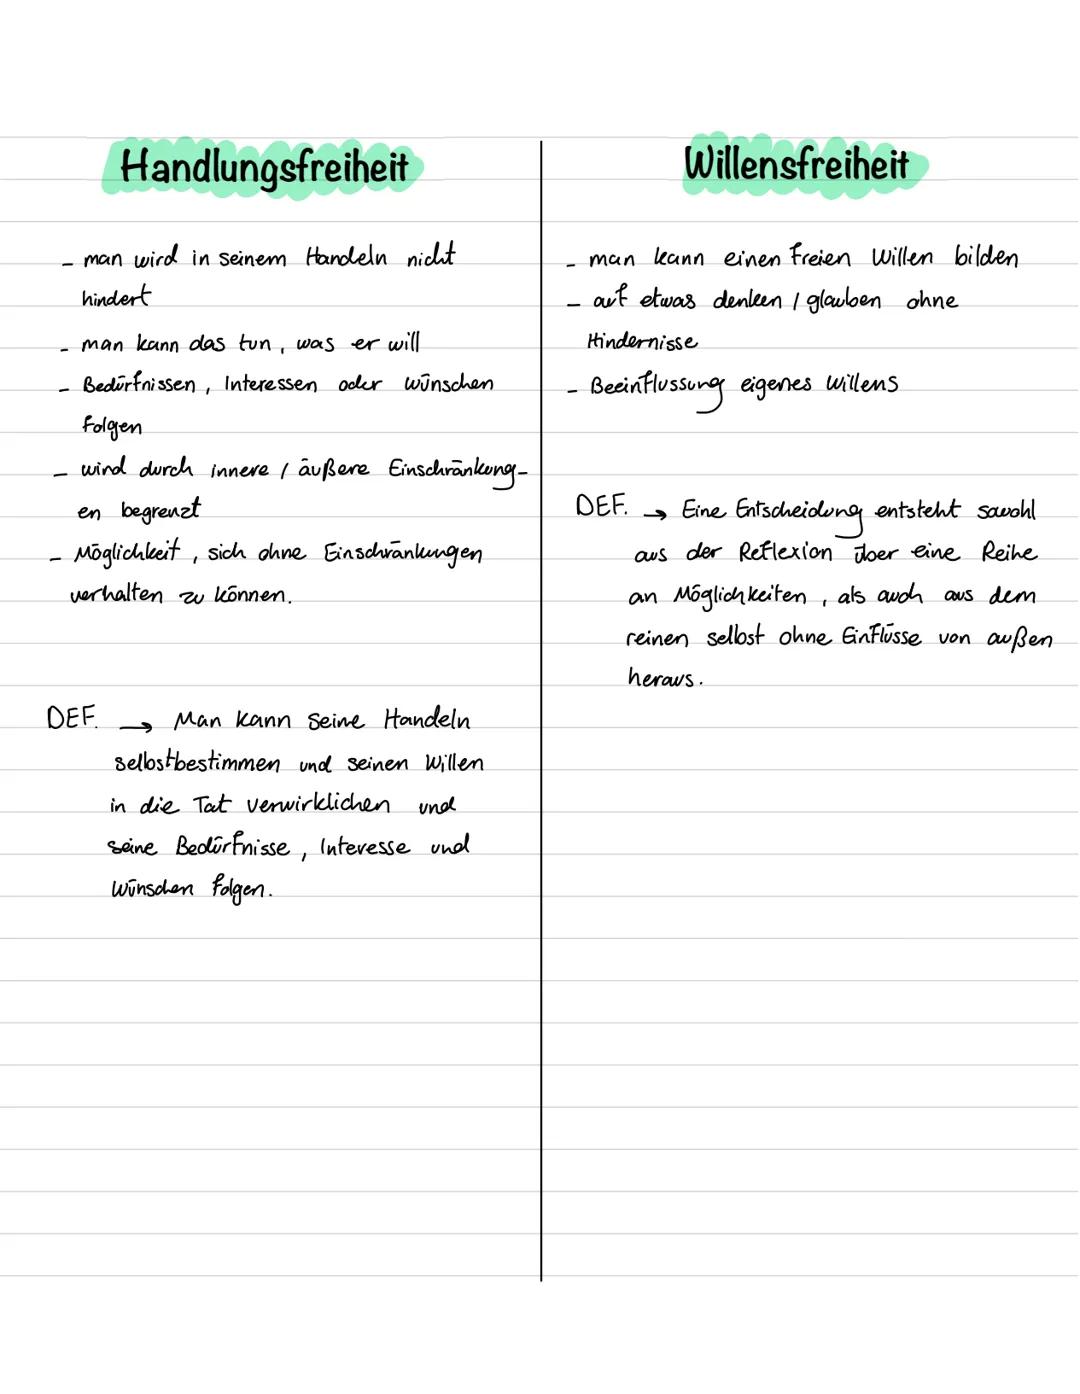 Handlungsfreiheit
- man wird in seinem Handeln nicht
hindert
- man kann das tun, was er will
- Bedürfnissen, Interessen oder wünschen
folgen
- wird durch innere / äußere Einschränkung-
en begrenzt
- Möglichkeit, sich ohne Einschränkungen
verhalten zu können.
DEF. → Man kann seine Handeln
selbstbestimmen und seinen Willen
in die Tat verwirklichen und
seine Bedürfnisse, Interesse und
Wünschen folgen.
Willensfreiheit
- man kann einen freien Willen bilden
- auf etwas denken / glauben ohne
Hindernisse
- Beeinflussung eigenes Willens
DEF. → Eine Entscheidung entsteht sowohl
aus der Reflexion über eine Reihe
an Möglichkeiten, als auch aus dem
reinen selbst ohne Einflüsse von außen
heraus.